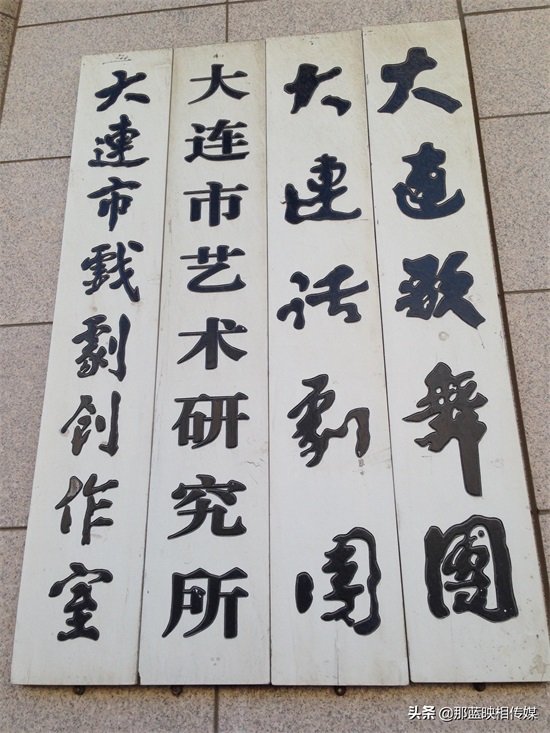 大連歌舞團
大連话劇團
大连市艺术研究所
大連市戲劇创作室
头条 @那蓝映相传媒